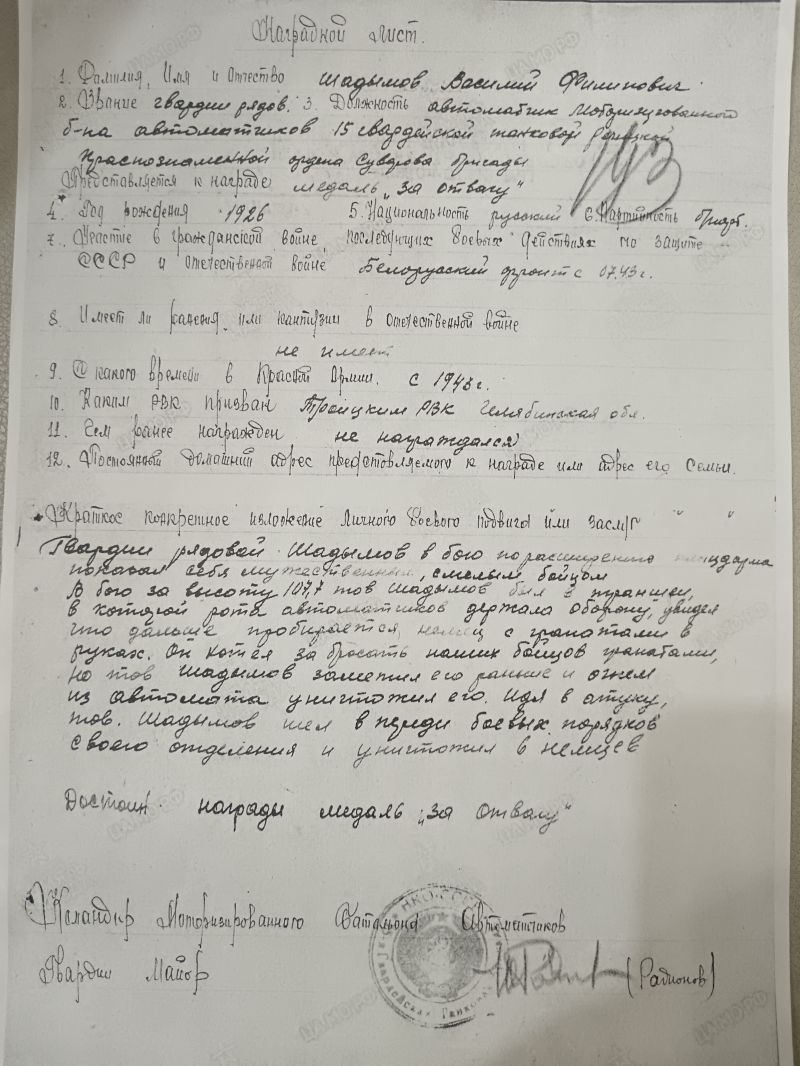 Наградной лист.
1. Фамилия, Имя и Отчество Шадымов Василий Филипович
2. Звание гвардии рядов. 3. Должность автоматчик Моторизированного
б-на автоматчиков 15 гвардейской танковой Речицкой
Краснознаменной ордена Суворова бригады
Представляется к награде медаль „За отвагу“
4. Год рождения 1926 5. Национальность русский 6. Партийность
7. Участие в гражданской войне, последующих боевых действиях по защите
СССР и отечественной войне Белорусский фронт с 07.43 г.
8. Имеет ли ранения, или кантузии в отечественной войне
не имеет
9. С какого времени в Красной Армии. с 1943 г.
10. Каким РВК призван Троицким РВК Челябинская обл.
11. Чем ранее награжден, не награждался
12. Постоянный домашний адрес предстовляемого к награде или адрес его семьи.
Краткое конкретное изложение личного боевого подвига или заслуг
Гвардии рядовой Шадымов в бою по расширению плацдарма
показал себя мужественным, смелым бойцом
В бою за высоту 107,7 тов Шадымов был в траншеи,
в которой рота автоматчиков держала оборону, увидел
что дальше пробирается немец с гранотами в
руках. Он хотел забросать наших бойцов гранатами,
но тов Шадымов заметил его раньше и огнем
из автомата уничтожил его. Идя в атуку,
тов. Шадымов шел в переди боевых порядков
своего отделения и уничтожил немцев
Достоин награды медаль „За отвагу“
Командир Моторизированного Батальона Автоматчиков
Гвардии Майор (Радионов)
НКО-СССР
ЦАМО РФ